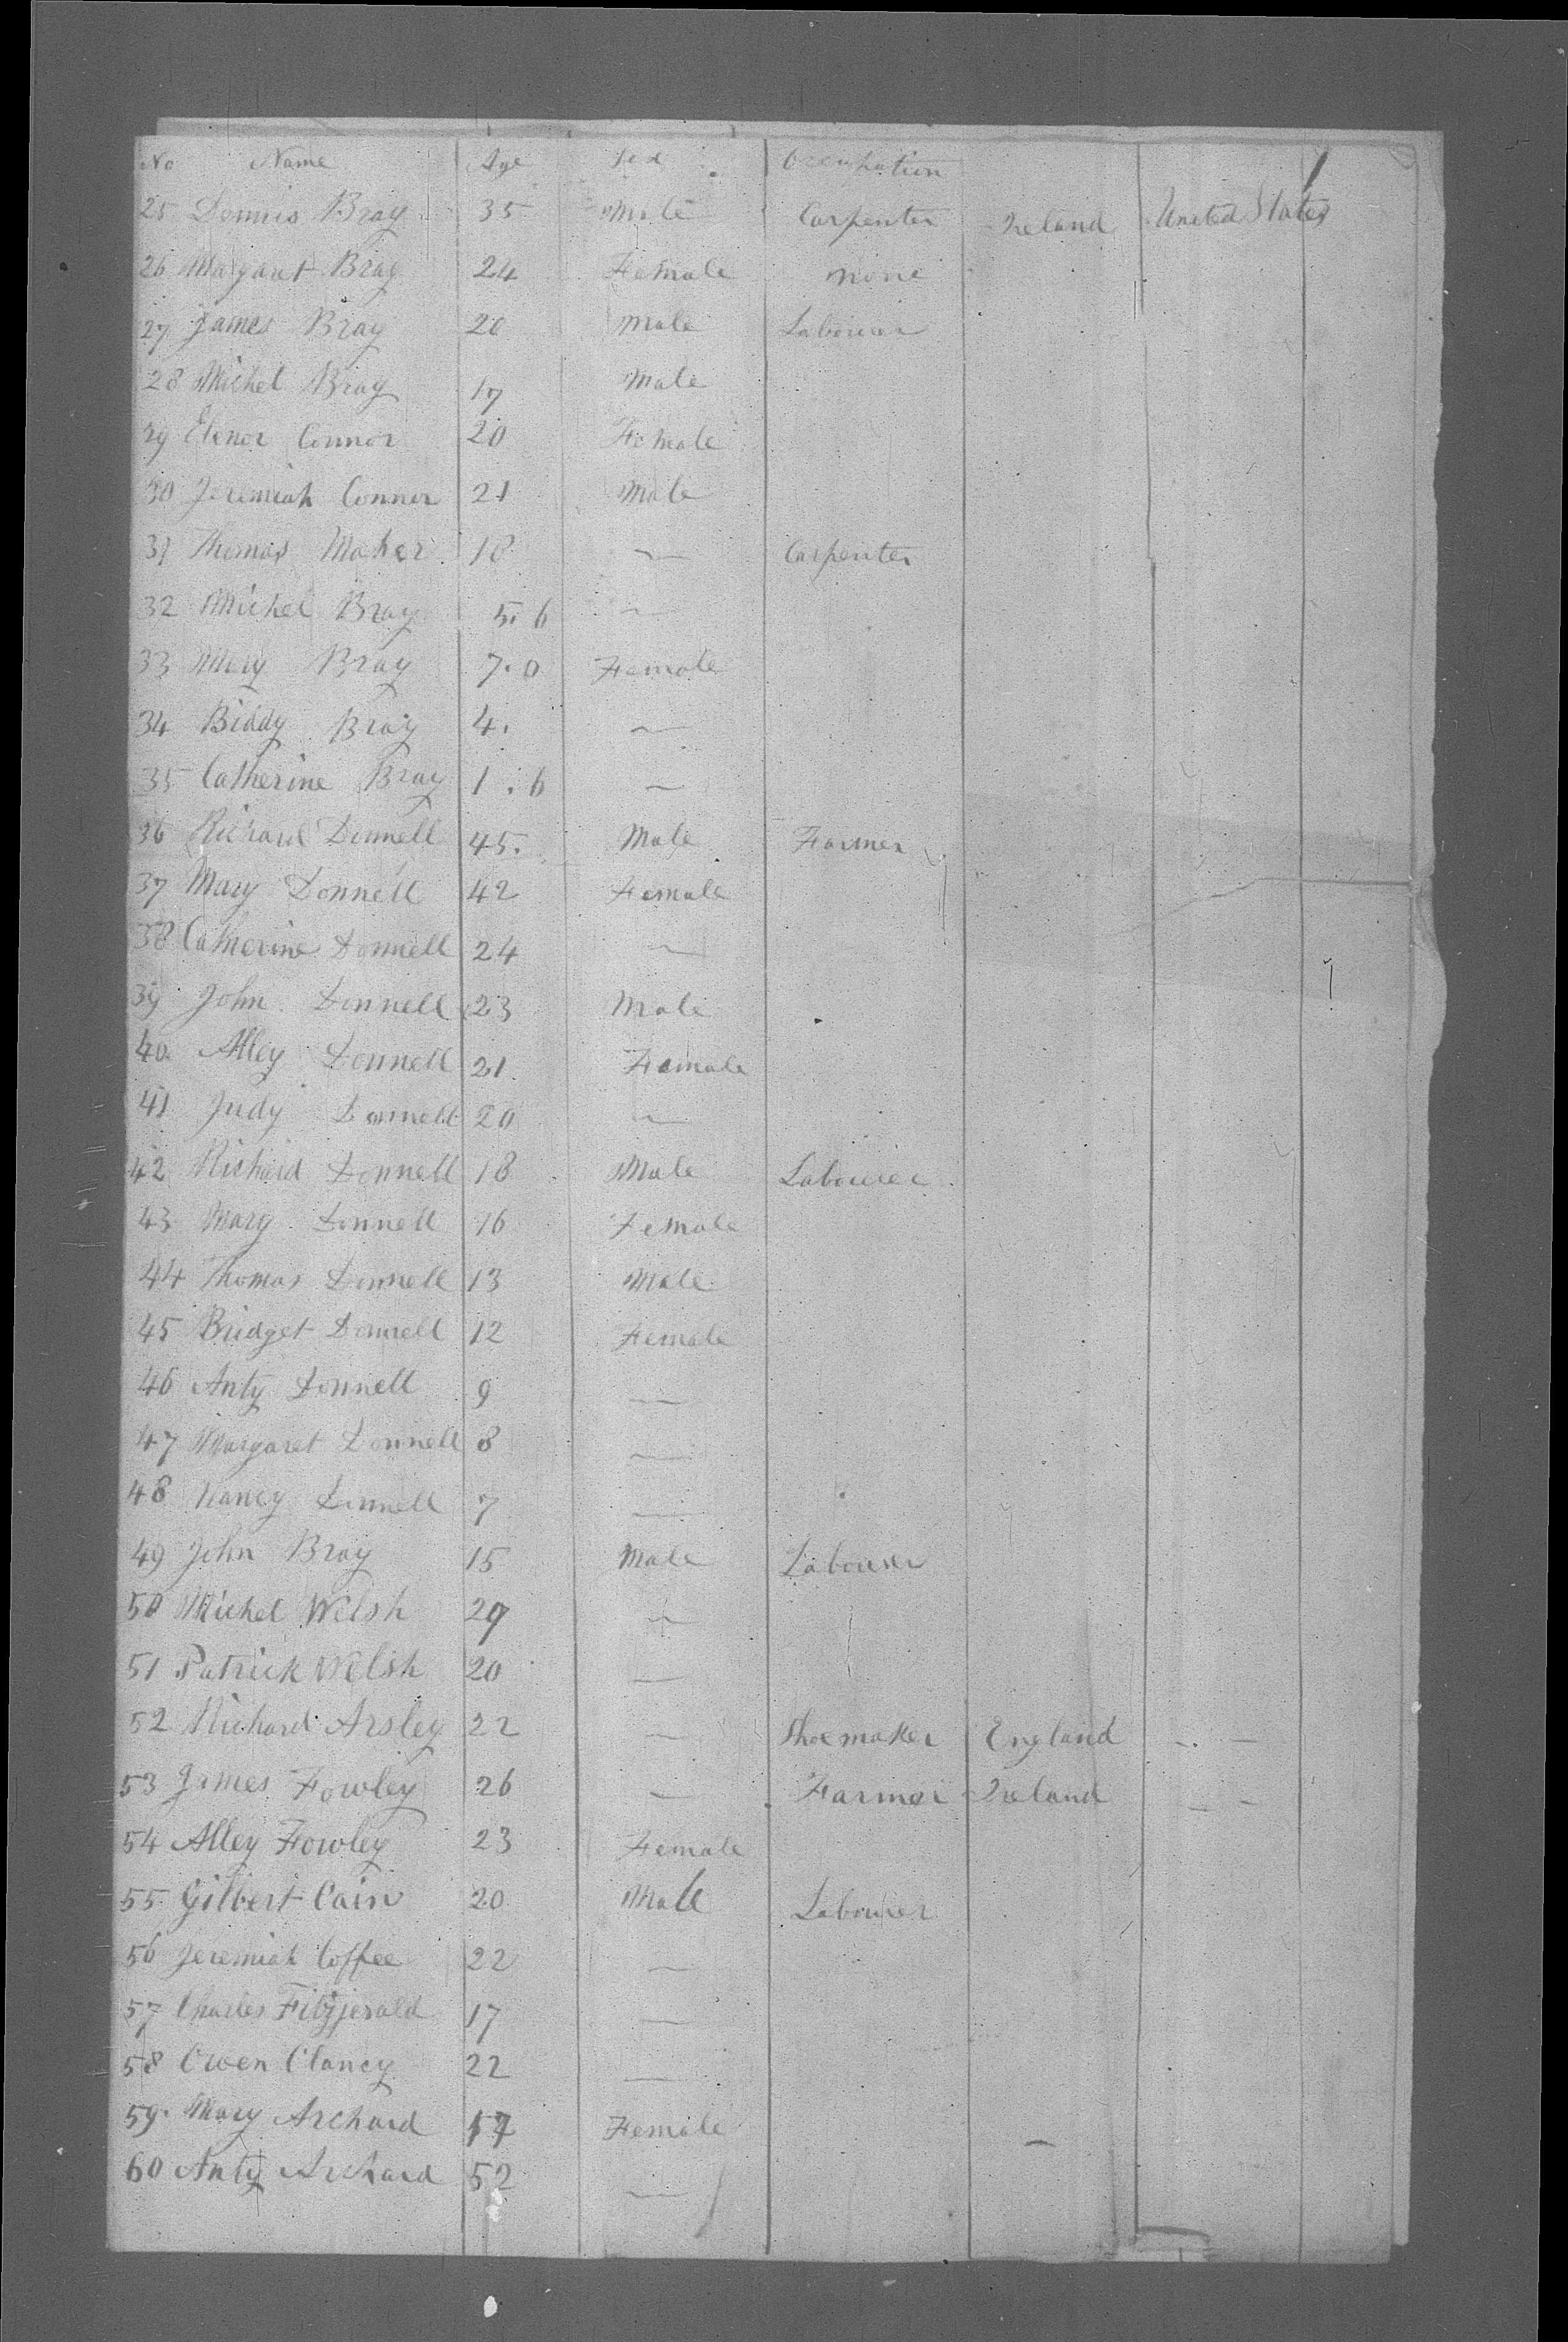 No Name Age Sex Occupation
25 Dennis Bray 35 Male Carpenter Ireland United States
26 Margaret Bray 24 Female none
27 James Bray 20 Male Labourer
28 Michel Bray 17 Male
29 Elenor Connor 20 Female
30 Jeremiah Connor 21 Male
31 Thomas Maher 18 — Carpenter
32 Michel Bray 5.6 —
33 Mary Bray 7.0 Female
34 Biddy Bray 4. —
35 Catherine Bray 1.6 —
36 Richard Donnell 45. Male Farmer
37 Mary Donnell 42 Female
38 Catherine Donnell 24 —
39 John Donnell 23 Male
40 Alley Donnell 21 Female
41 Judy Donnell 20 —
42 Richard Donnell 18 Male Labourer
43 Mary Donnell 16 Female
44 Thomas Donnell 13 Male
45 Bridget Donnell 12 Female
46 Anty Donnell 9 —
47 Margaret Donnell 8 —
48 Nancy Donnell 7 —
49 John Bray 15 Male Labourer
50 Michel Welsh 29 —
51 Patrick Welsh 20 —
52 Richard Arsley 22 — Shoemaker England - -
53 James Fowley 26 — Farmer Ireland - -
54 Alley Fowley 23 Female
55 Gilbert Cain 20 Male Labourer
56 Jeremiah Coffee 22 —
57 Charles Fitzjerald 17 —
58 Owen Clancy 22 —
59. Mary Archard 17 Female
60 Anty Archard 52 —